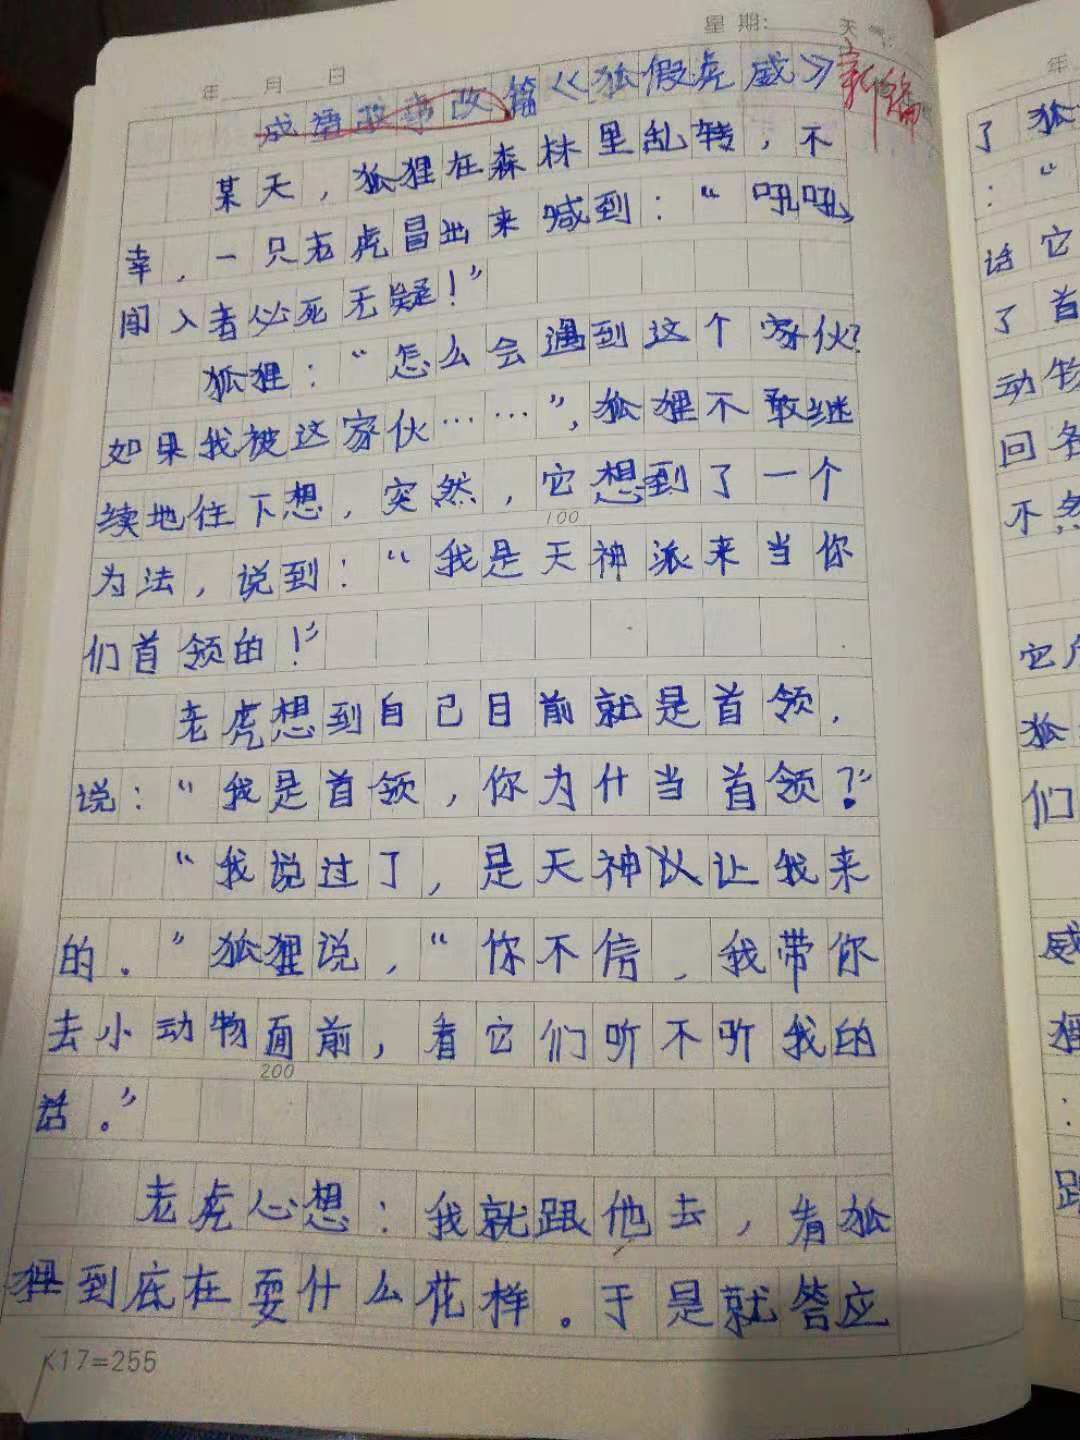 星期: 天气:
年 月 日
成语故事改篇《狐假虎威》新编
某天，狐狸在森林里乱转，不
幸，一只老虎冒出来喊到：“吼吼，
闯入者必死无疑！”
狐狸：“怎么会遇到这个家伙?
如果我被这家伙……”，狐狸不敢继
续地往下想，突然，它想到了一个
100
为法，说到：“我是天神派来当你
们首领的！”
老虎想到自己目前就是首领，
说：“我是首领，你为什当首领？”
“我说过了，是天神议让我来
的．”狐狸说，“你不信，我带你
去小动物面前，看它们听不听我的
200
话．”
老虎心想：我就跟他去，看狐
狸到底在耍什么花样。于是就答应
K17=255
年
了狐
：“
话它
了首
动物
回各
不然
它
狐
们
威
狸
：